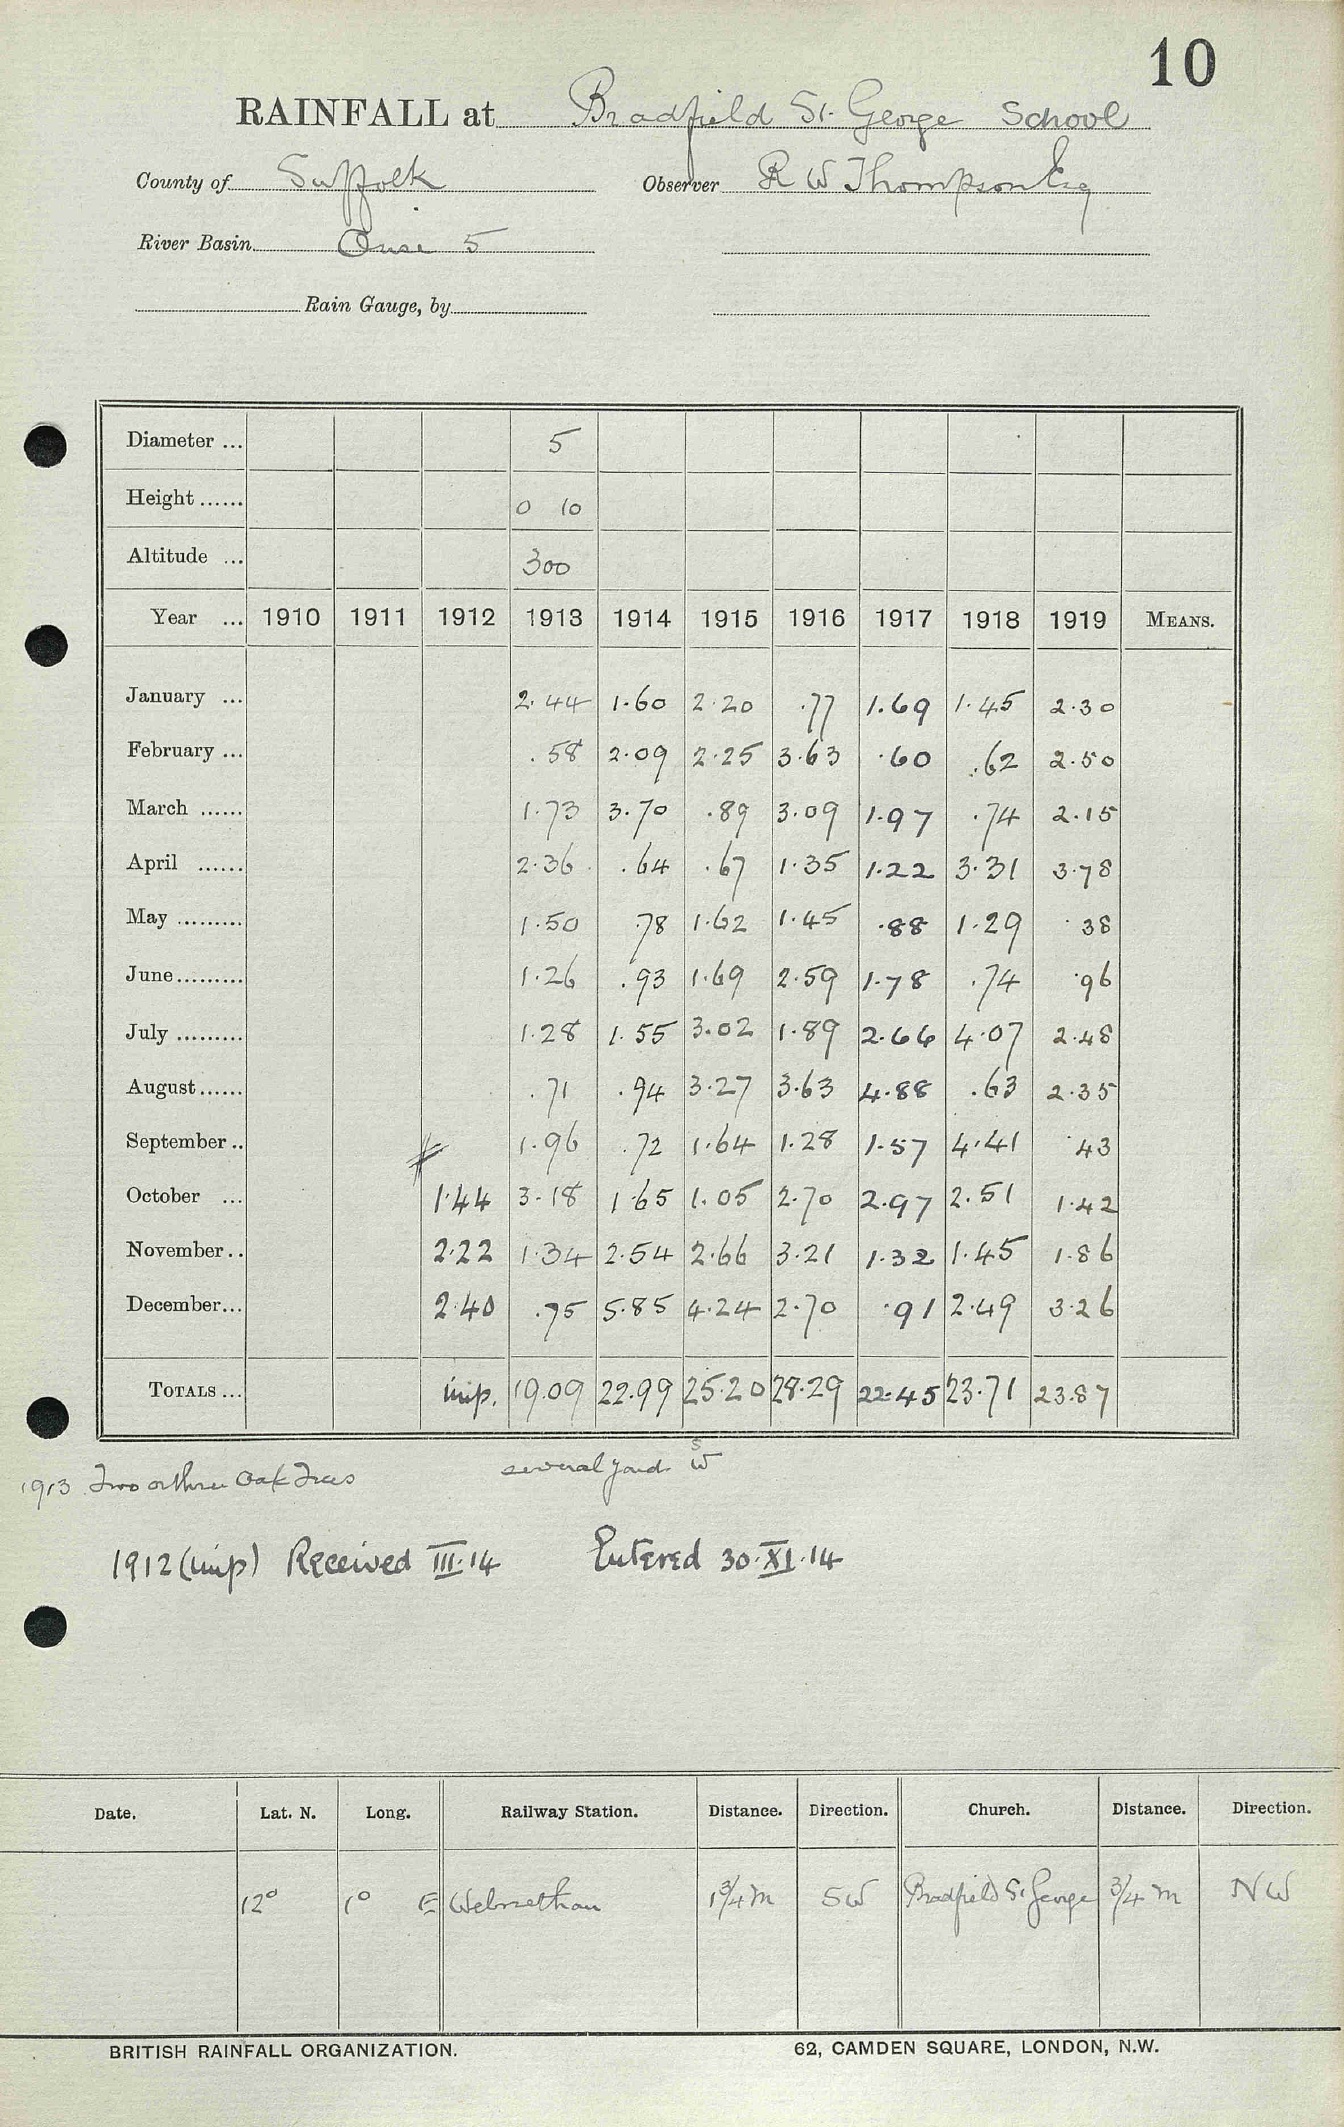 10
RAINFALL at Bradfield St. George School
County of Suffolk Observer R W Thompson Esq
River Basin Ouse 5
Rain Gauge, by
Diameter ... 5
Height ...... 0 10
Altitude ... 300
Year ... 1910 1911 1912 1913 1914 1915 1916 1917 1918 1919 MEANS.
January ... 2.44 1.60 2.20 .77 1.69 1.45 2.30
February ... .58 2.09 2.25 3.63 .60 .62 2.50
March ...... 1.73 3.70 .89 3.09 1.97 .74 2.15
April ...... 2.36 .64 .67 1.35 1.22 3.31 3.78
May ......... 1.50 .78 1.62 1.45 .88 1.29 .38
June ......... 1.26 .93 1.69 2.59 1.78 .74 .96
July ......... 1.28 1.55 3.02 1.89 2.66 4.07 2.48
August ...... .71 .94 3.27 3.63 4.88 .63 2.35
September .. 1.96 .72 1.64 1.28 1.57 4.41 .43
October ... 1.44 3.18 1.65 1.05 2.70 2.97 2.51 1.42
November .. 2.22 1.34 2.54 2.66 3.21 1.32 1.45 1.86
December ... 2.40 .75 5.85 4.24 2.70 .91 2.49 3.26
TOTALS ... imp. 19.09 22.99 25.20 28.29 22.45 23.71 23.87
1913 Two or three Oak Trees several yards S W
1912 (imp) Received III.14 Entered 30.XI.14
Date. Lat. N. Long. Railway Station. Distance. Direction. Church. Distance. Direction.
12° 1° E Welnetham 1 3/4 m SW Bradfield St George 3/4 m NW
BRITISH RAINFALL ORGANIZATION. 62, CAMDEN SQUARE, LONDON, N.W.